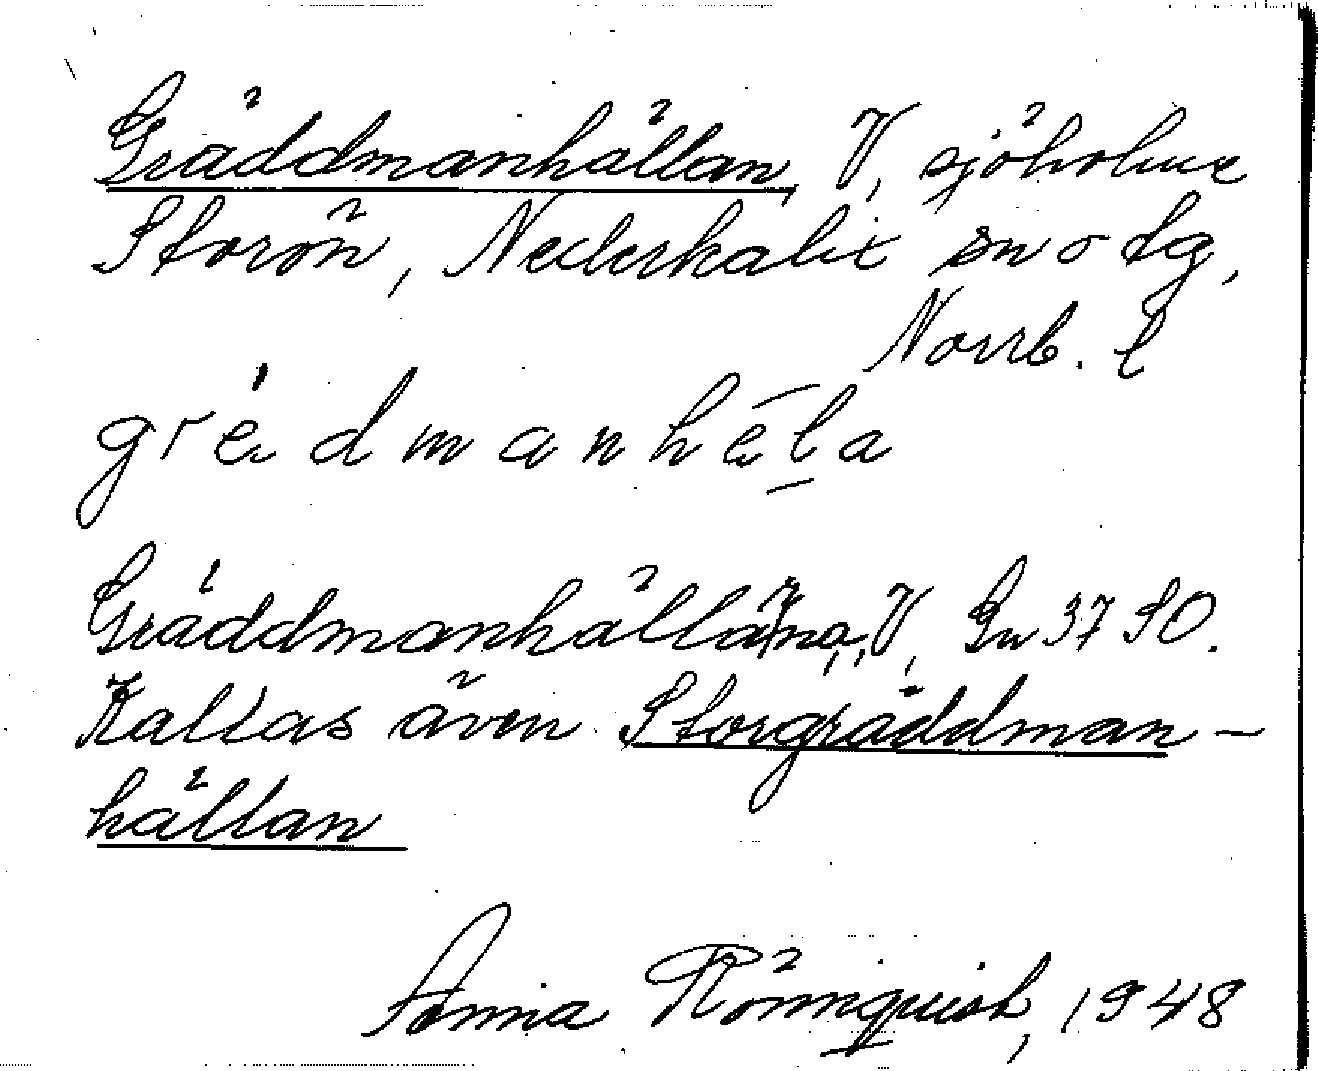 Gräddmanhällan, V, sjöholme
Storön, Nederkalix sn o tg,
Norrb. l
grédmanhéla
Gräddmanhällarna, V, Gn 37 SO.
Kallas även Storgräddman-
hällan
Anna Rönnquist, 1948